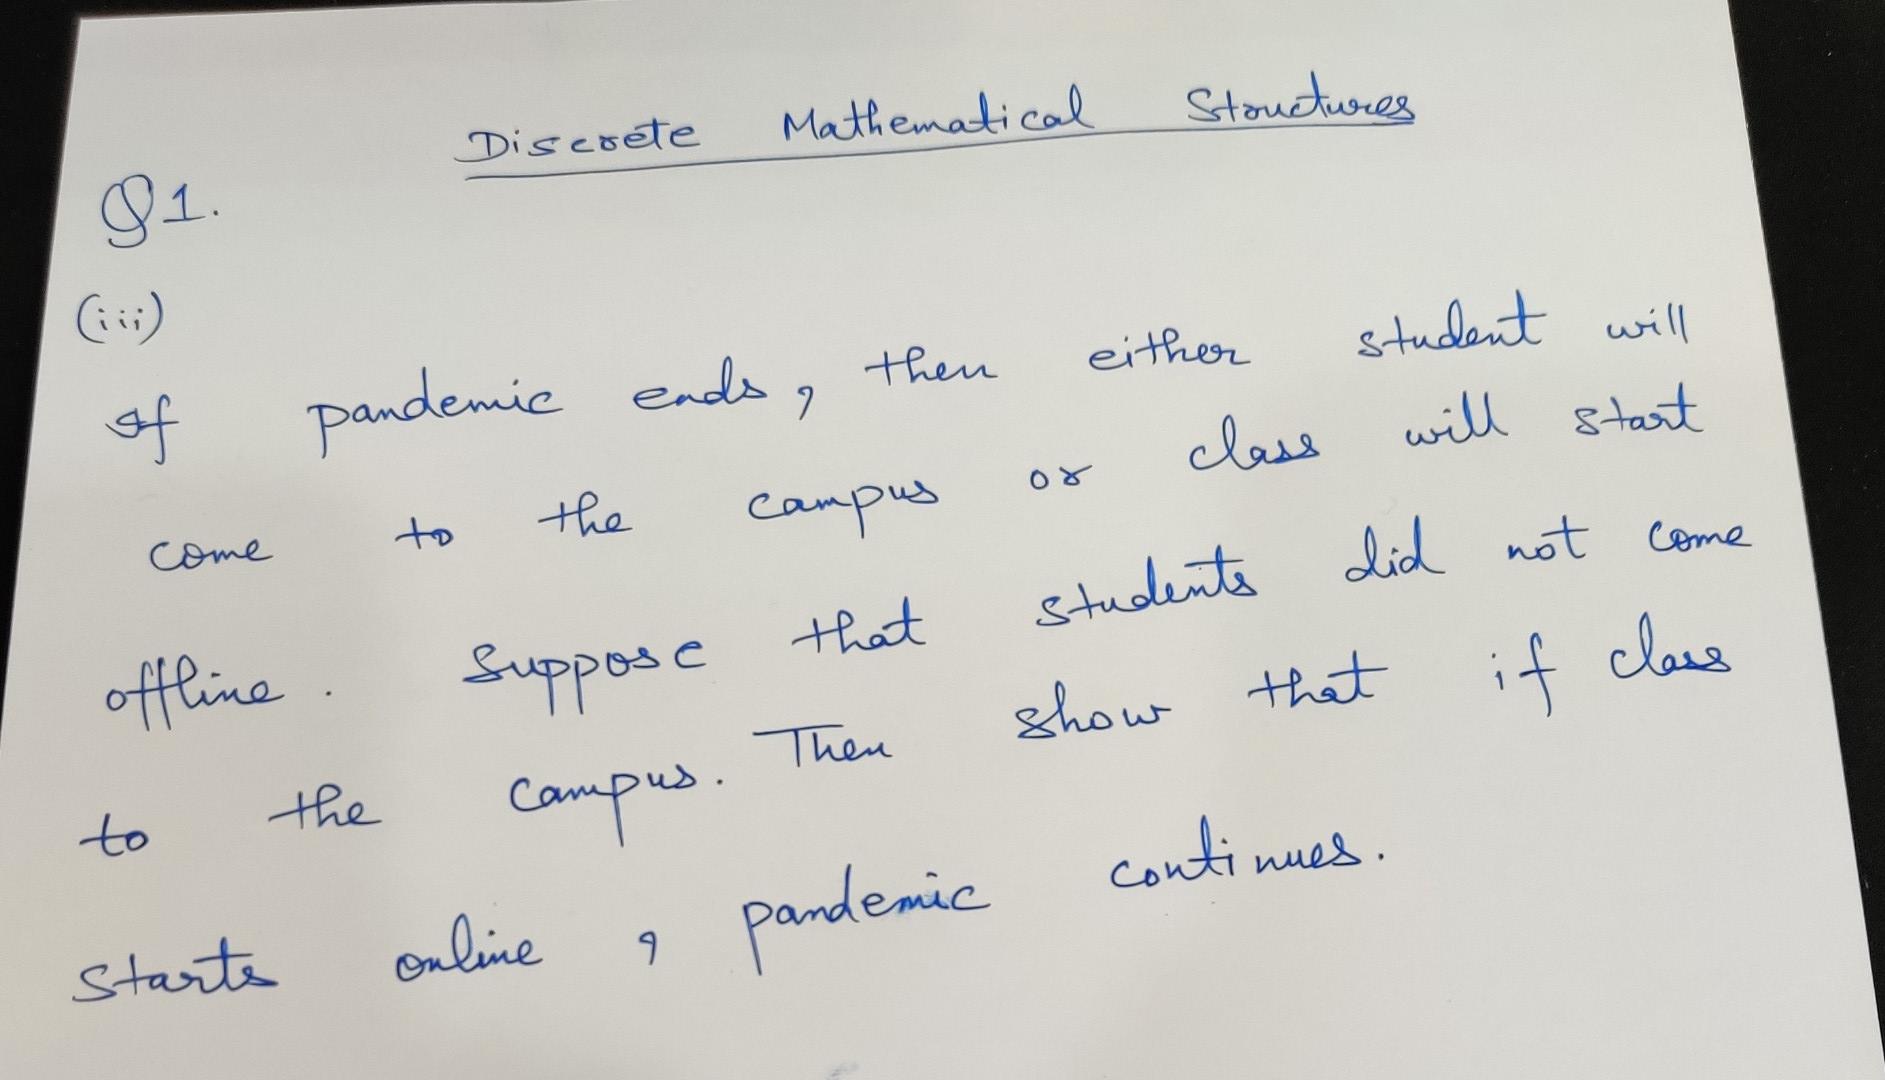 Discrete Mathematical Structures
Q1.
(iii)
If pandemic ends, then either student will
come to the campus or class will start
offline. Suppose that students did not come
to the campus. Then show that if class
starts online, pandemic continues.